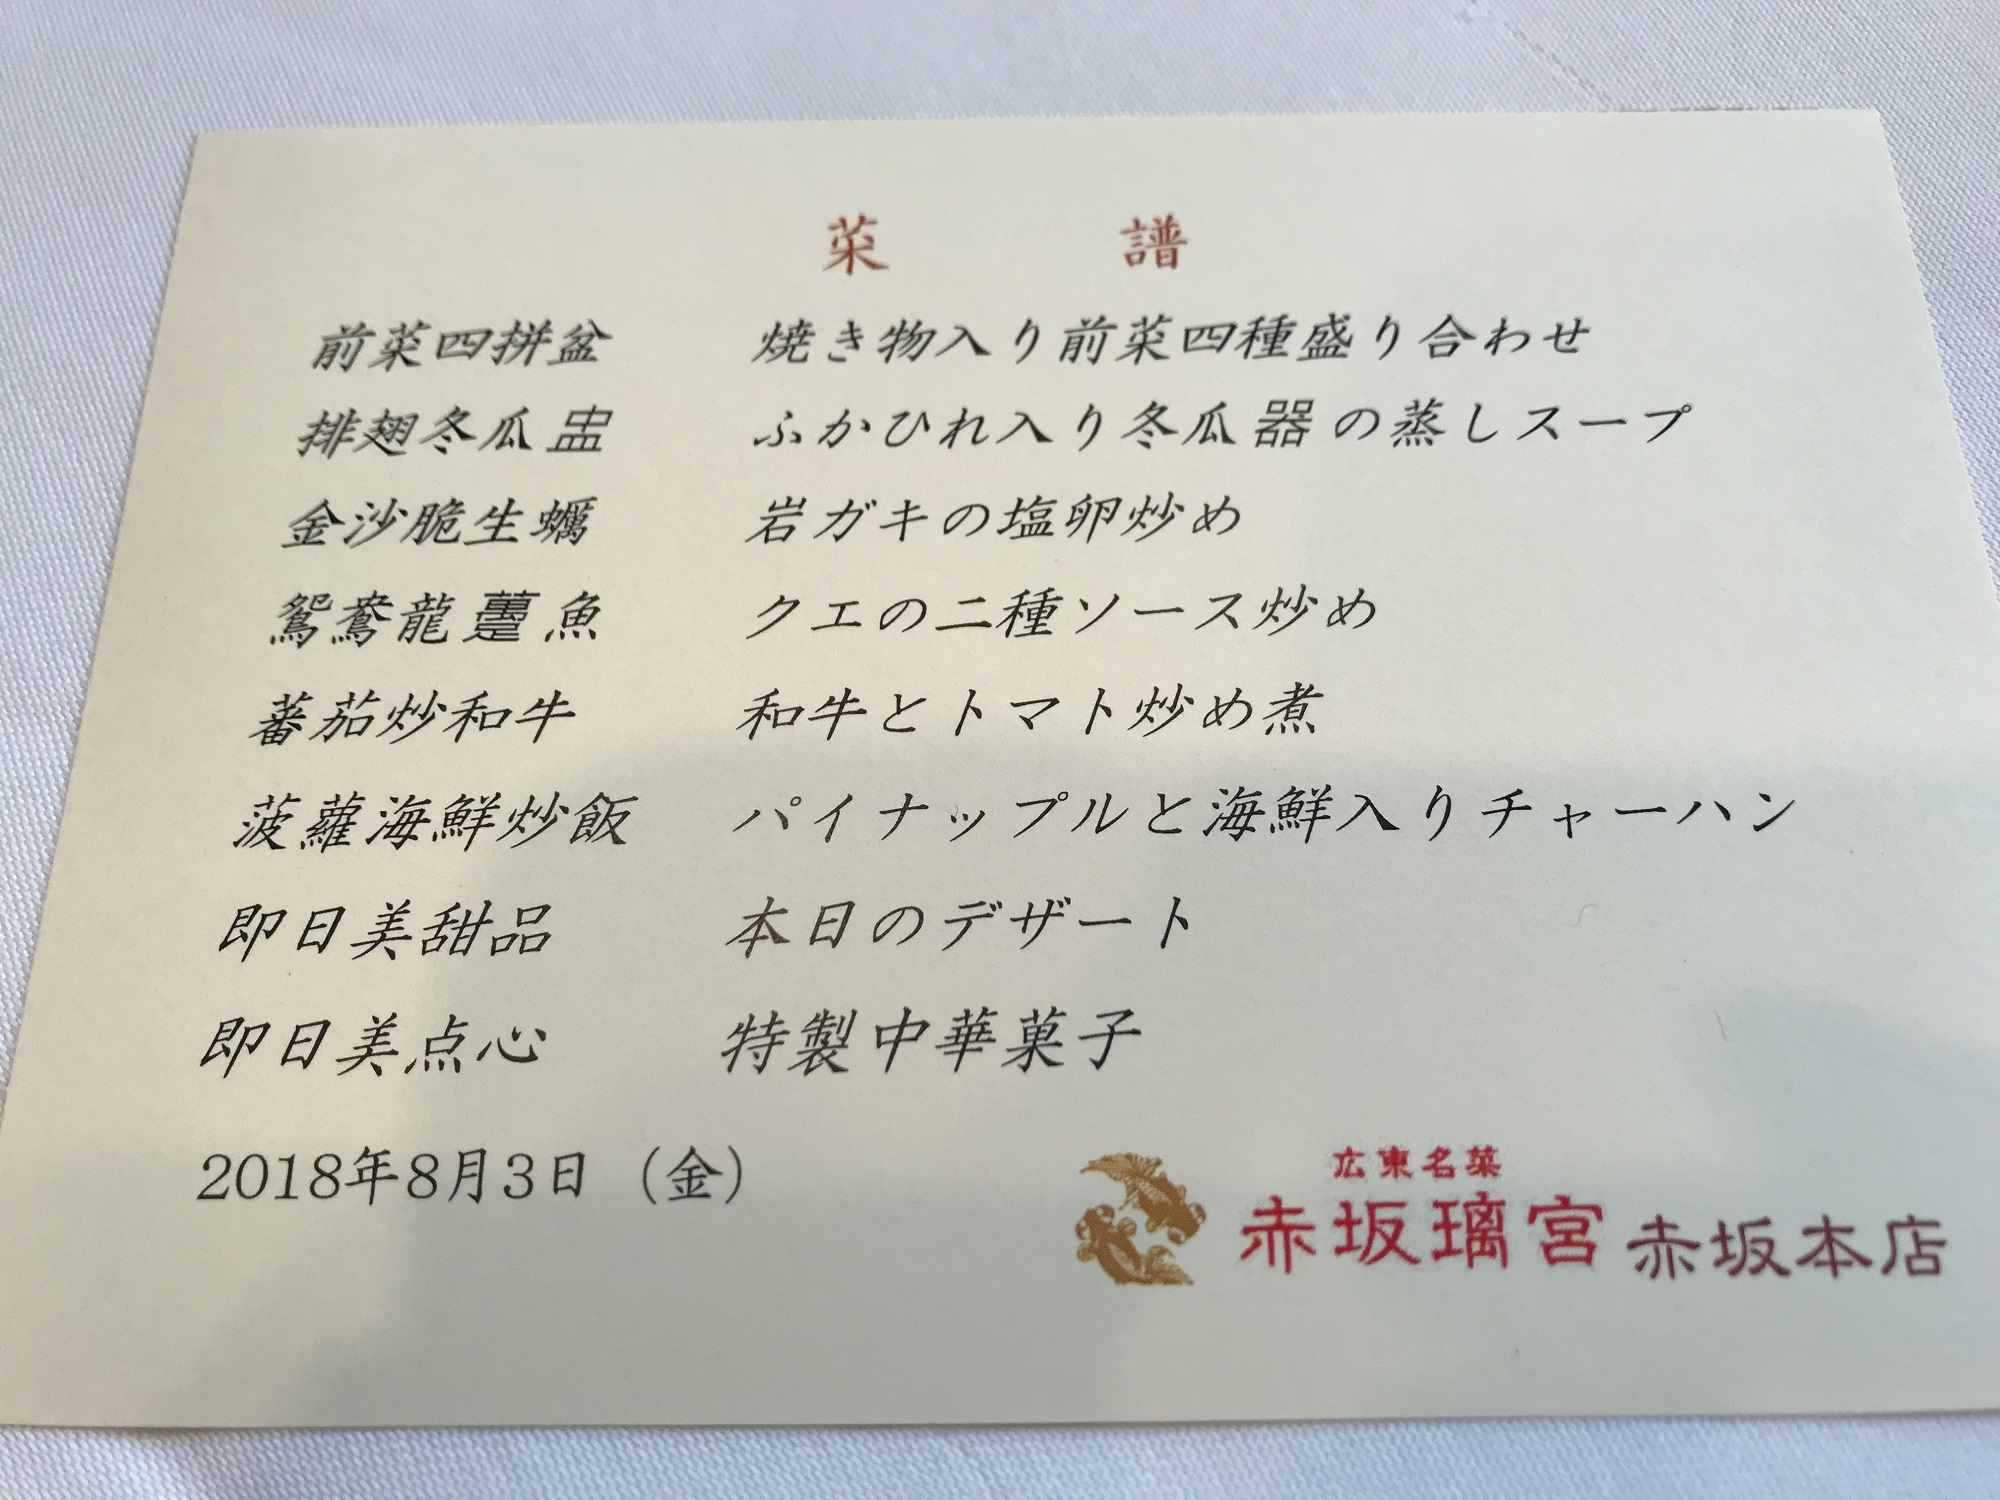 菜 譜
前菜四拼盆 焼き物入り前菜四種盛り合わせ
排翅冬瓜盅 ふかひれ入り冬瓜器の蒸しスープ
金沙脆生蠣 岩ガキの塩卵炒め
鴛鴦龍躉魚 クエの二種ソース炒め
蕃茄炒和牛 和牛とトマト炒め煮
菠蘿海鮮炒飯 パイナップルと海鮮入りチャーハン
即日美甜品 本日のデザート
即日美点心 特製中華菓子
2018年8月3日（金）
広東名菜
赤坂璃宮 赤坂本店